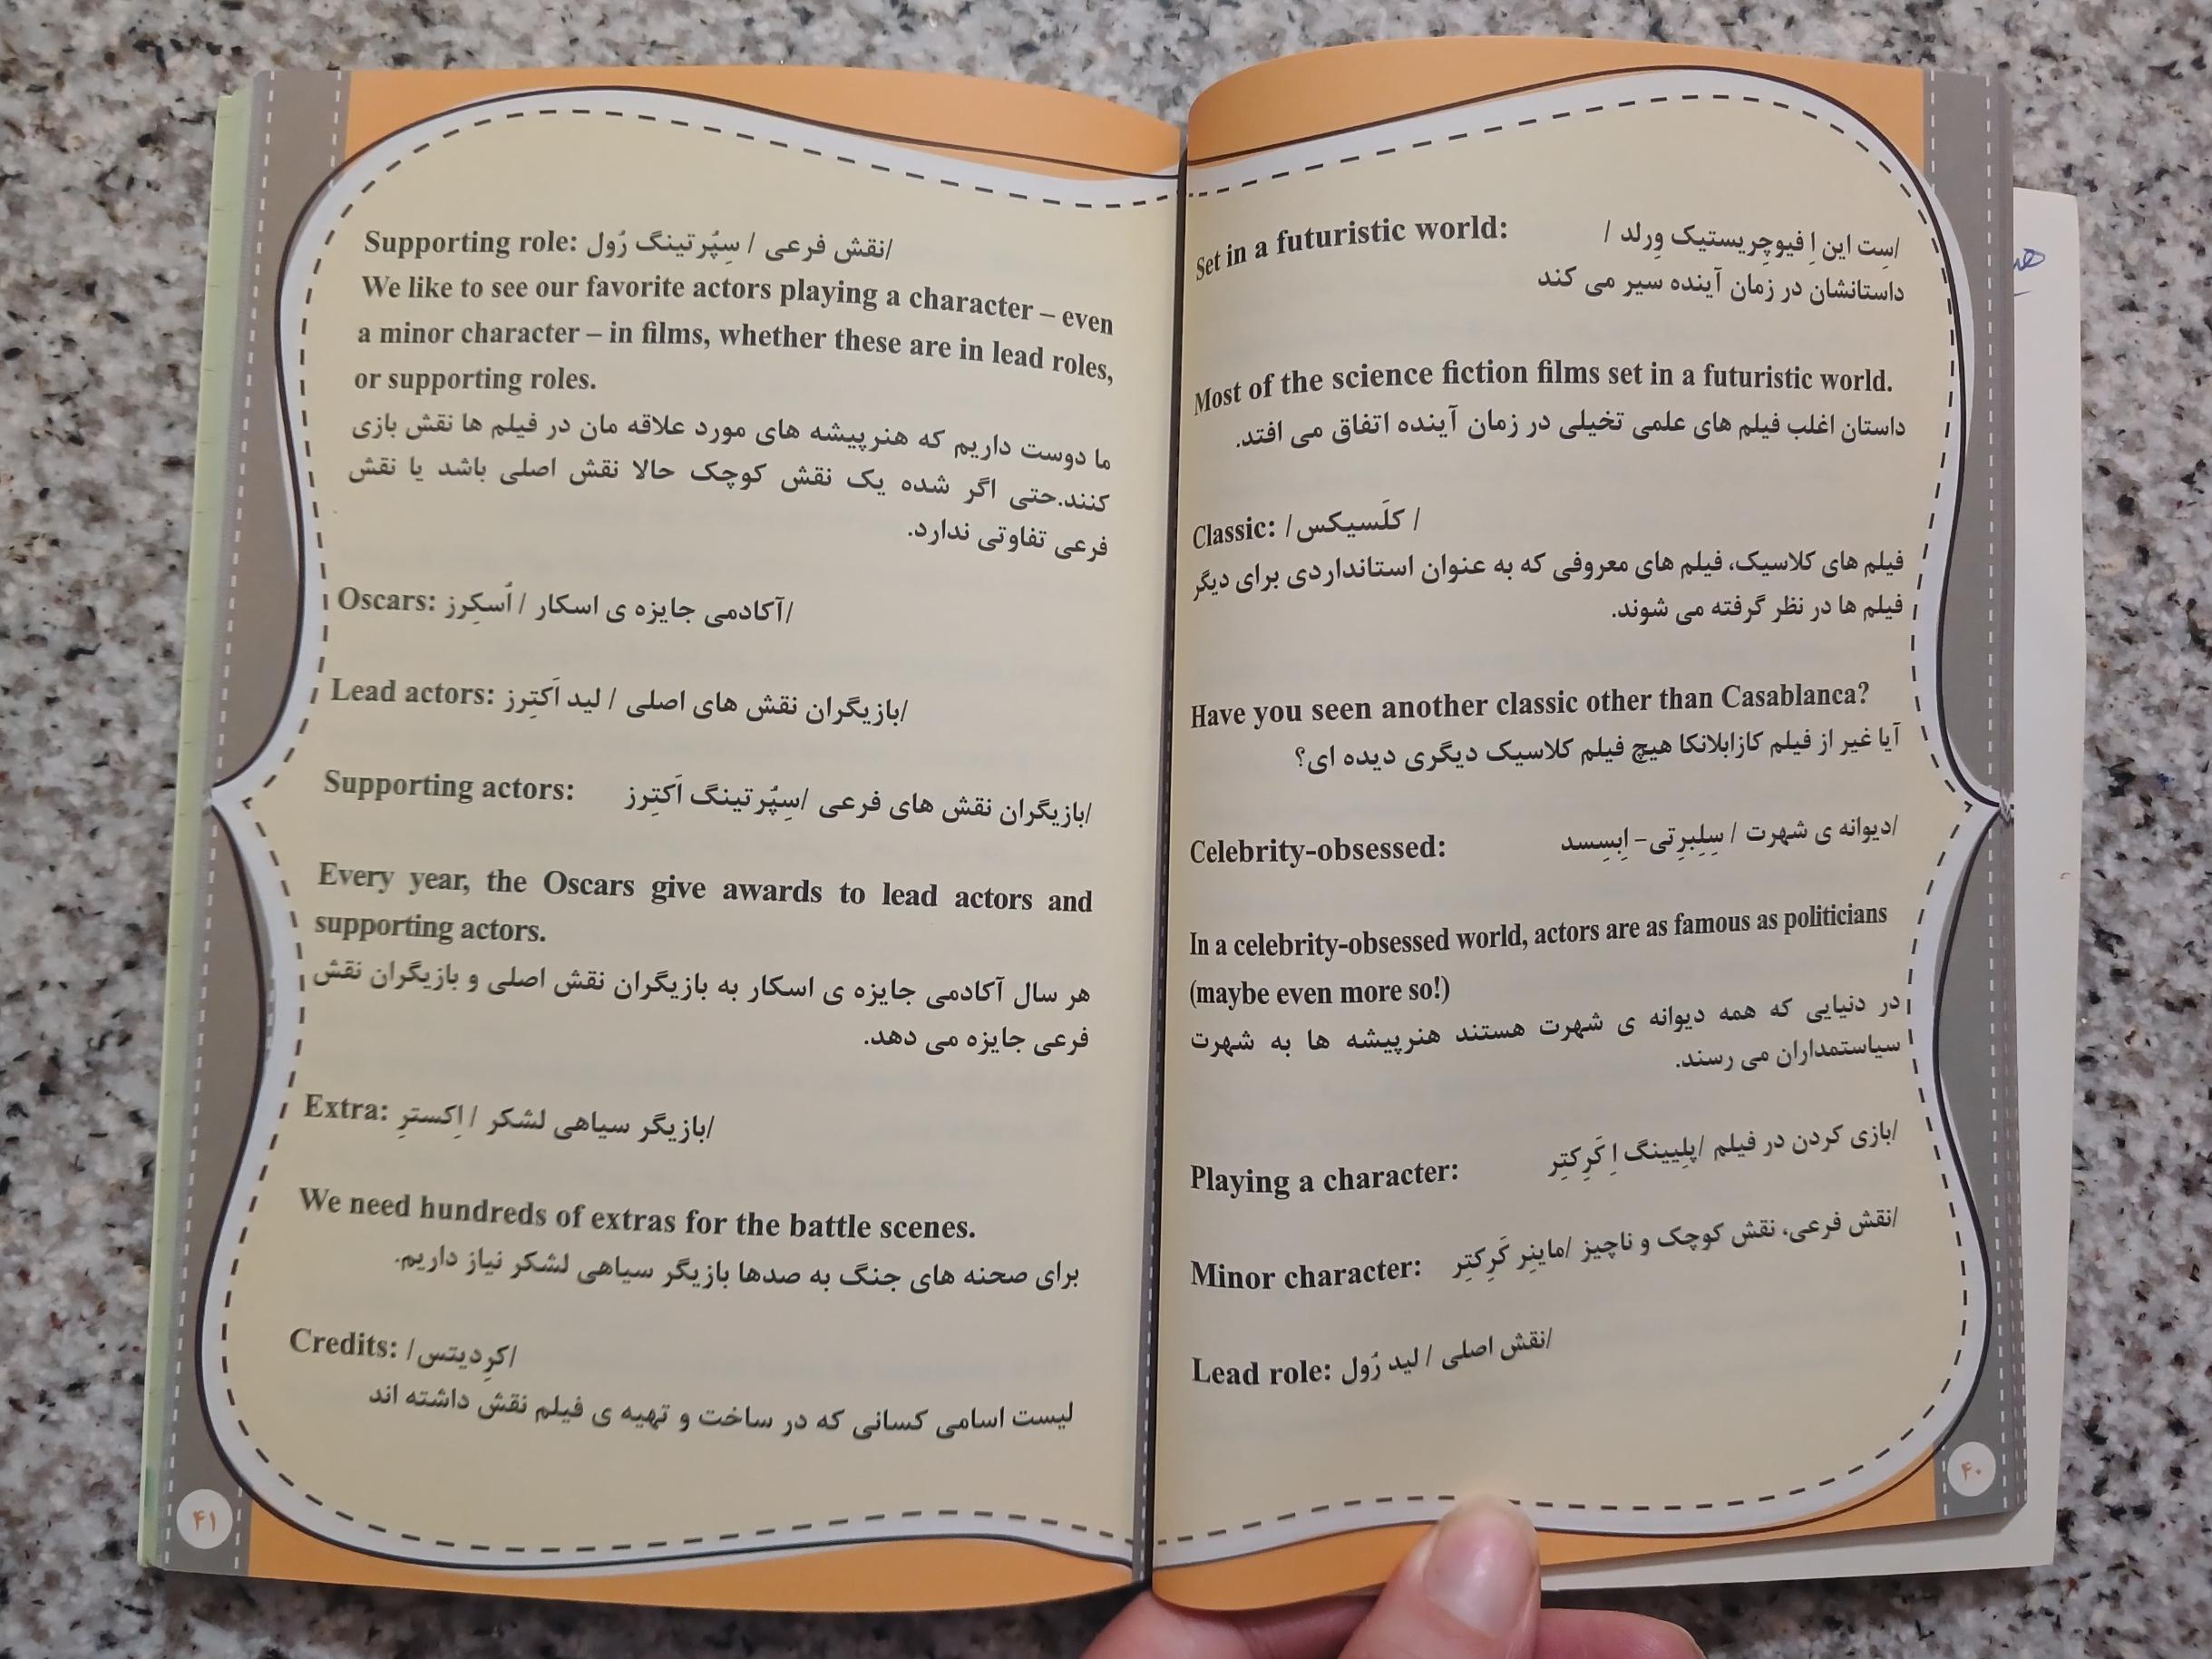 Set in a futuristic world: /سِت این اِ فیوچِریستیک وِرلد /
داستانشان در زمان آینده سیر می کند
Most of the science fiction films set in a futuristic world.
داستان اغلب فیلم های علمی تخیلی در زمان آینده اتفاق می افتد.
Classic: /کلَسیکس /
فیلم های کلاسیک، فیلم های معروفی که به عنوان استانداردی برای دیگر
فیلم ها در نظر گرفته می شوند.
Have you seen another classic other than Casablanca?
آیا غیر از فیلم کازابلانکا هیچ فیلم کلاسیک دیگری دیده ای؟
Celebrity-obsessed: /دیوانه ی شهرت / سِلِبرِتی– اِبسِسد
In a celebrity-obsessed world, actors are as famous as politicians
(maybe even more so!)
در دنیایی که همه دیوانه ی شهرت هستند هنرپیشه ها به شهرت
سیاستمداران می رسند.
Playing a character: /بازی کردن در فیلم /پلِیینگ اِ کَرِکتِر
Minor character: /نقش فرعی، نقش کوچک و ناچیز /ماینِر کَرِکتِر
Lead role: /نقش اصلی / لید رُول
۴۰
Supporting role: /نقش فرعی / سِپُرتینگ رُول
We like to see our favorite actors playing a character – even
a minor character – in films, whether these are in lead roles,
or supporting roles.
ما دوست داریم که هنرپیشه های مورد علاقه مان در فیلم ها نقش بازی
کنند.حتی اگر شده یک نقش کوچک حالا نقش اصلی باشد یا نقش
فرعی تفاوتی ندارد.
Oscars: /آکادمی جایزه ی اسکار / اُسکِرز
Lead actors: /بازیگران نقش های اصلی / لید اَکتِرز
Supporting actors: /بازیگران نقش های فرعی /سِپُرتینگ اَکتِرز
Every year, the Oscars give awards to lead actors and
supporting actors.
هر سال آکادمی جایزه ی اسکار به بازیگران نقش اصلی و بازیگران نقش
فرعی جایزه می دهد.
Extra: /بازیگر سیاهی لشکر / اِکسترِ
We need hundreds of extras for the battle scenes.
برای صحنه های جنگ به صدها بازیگر سیاهی لشکر نیاز داریم.
Credits: /کرِدیتس/
لیست اسامی کسانی که در ساخت و تهیه ی فیلم نقش داشته اند
۴۱